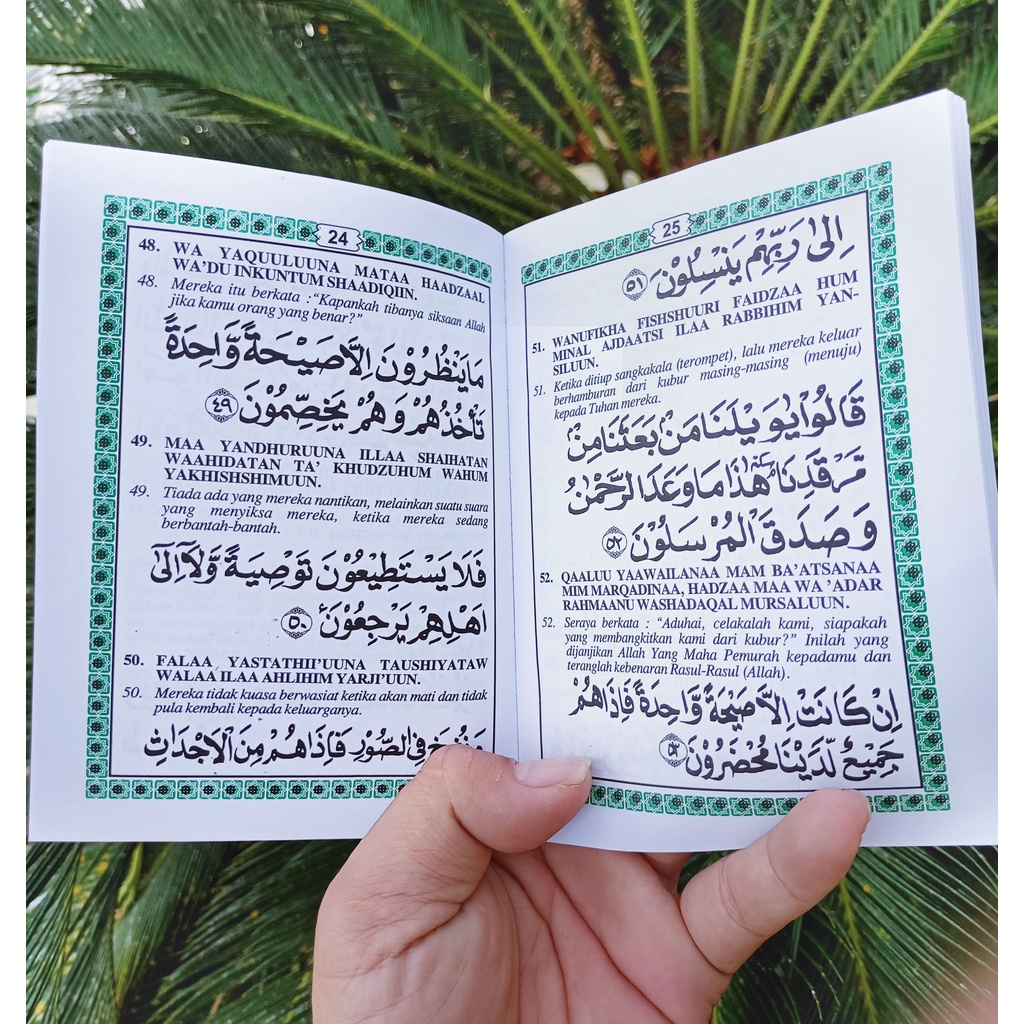 24
48. WA YAQUULUUNA MATAA HAADZAAL
WA'DU INKUNTUM SHAADIQIIN.
48. Mereka itu berkata :"Kapankah tibanya siksaan Allah
jika kamu orang yang benar?"
مَا يَنْظُرُوْنَ اِلَّا صَيْحَةً وَّاحِدَةً
تَأْخُذُهُمْ وَهُمْ يَخِصِّمُوْنَ ٤٩
49. MAA YANDHURUUNA ILLAA SHAIHATAN
WAAHIDATAN TA' KHUDZUHUM WAHUM
YAKHISHSHIMUUN.
49. Tiada ada yang mereka nantikan, melainkan suatu suara
yang menyiksa mereka, ketika mereka sedang
berbantah-bantah.
فَلَا يَسْتَطِيْعُوْنَ تَوْصِيَةً وَّلَآ اِلٰٓى
اَهْلِهِمْ يَرْجِعُوْنَ ٥٠
50. FALAA YASTATHII'UUNA TAUSHIYATAW
WALAA ILAA AHLIHIM YARJI'UUN.
50. Mereka tidak kuasa berwasiat ketika akan mati dan tidak
pula kembali kepada keluarganya.
وَنُفِخَ فِى الصُّوْرِ فَاِذَا هُمْ مِنَ الْاَجْدَاثِ
25
اِلٰى رَبِّهِمْ يَنْسِلُوْنَ ٥١
51. WANUFIKHA FISHSHUURI FAIDZAA HUM
MINAL AJDAATSI ILAA RABBIHIM YAN-
SILUUN.
51. Ketika ditiup sangkakala (terompet), lalu mereka keluar
berhamburan dari kubur masing-masing (menuju)
kepada Tuhan mereka.
قَالُوْا يٰوَيْلَنَا مَنْ بَعَثَنَا مِنْ
مَّرْقَدِنَا هٰذَا مَا وَعَدَ الرَّحْمٰنُ
وَصَدَقَ الْمُرْسَلُوْنَ ٥٢
52. QAALUU YAAWAILANAA MAM BA'ATSANAA
MIM MARQADINAA, HADZAA MAA WA 'ADAR
RAHMAANU WASHADAQAL MURSALUUN.
52. Seraya berkata : "Aduhai, celakalah kami, siapakah
yang membangkitkan kami dari kubur?" Inilah yang
dijanjikan Allah Yang Maha Pemurah kepadamu dan
teranglah kebenaran Rasul-Rasul (Allah).
اِنْ كَانَتْ اِلَّا صَيْحَةً وَّاحِدَةً فَاِذَا هُمْ
جَمِيْعٌ لَّدَيْنَا مُحْضَرُوْنَ ٥٣